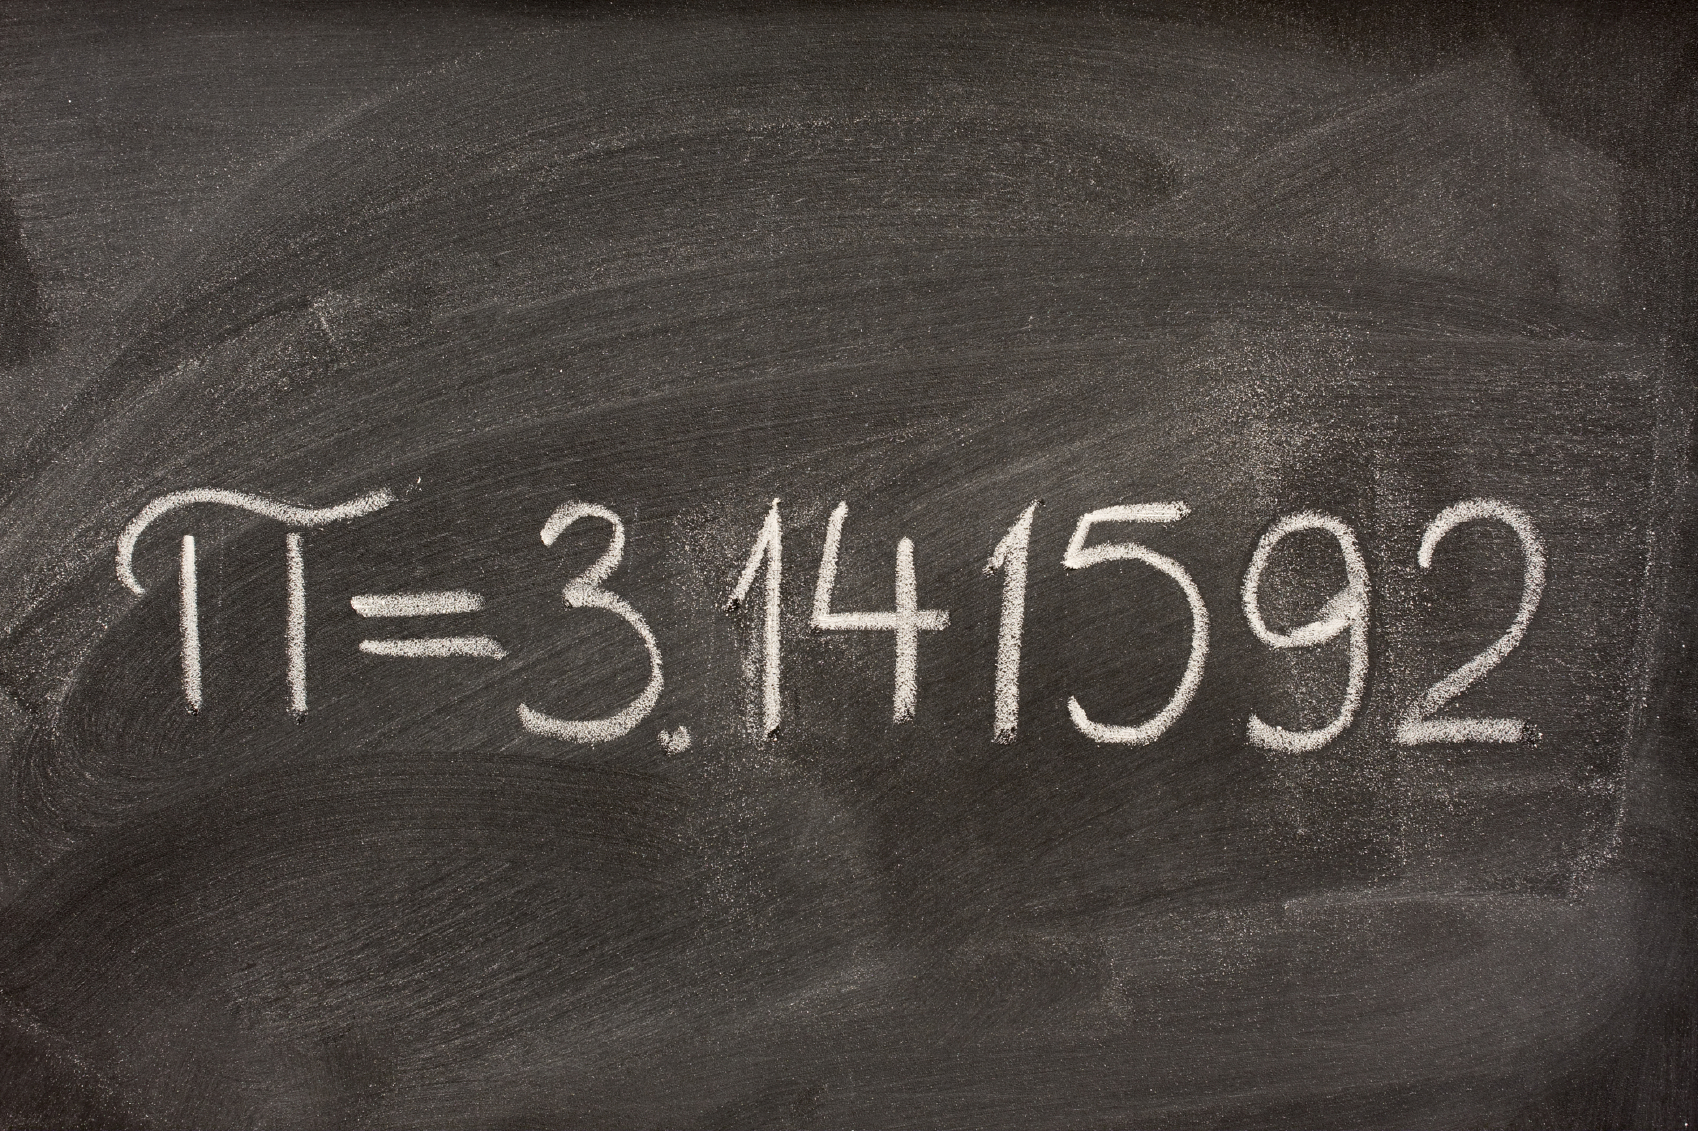 π=3.141592